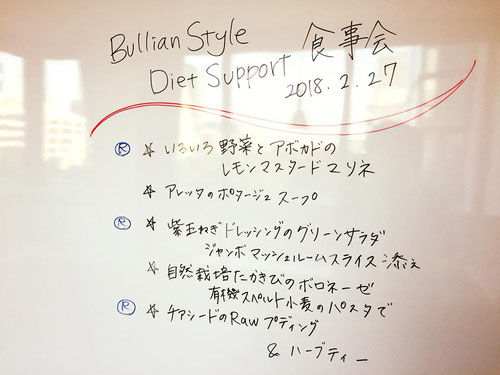 Bullian Style 食事会
Diet Support 2018.2.27
Ⓡ ☆ いろいろ野菜とアボカドの
レモンマスタードマリネ
☆ アレッタのポタージュスープ
Ⓡ ☆ 紫玉ねぎドレッシングのグリーンサラダ
ジャンボマッシュルームスライス添え
☆ 自然栽培たかきびのボロネーゼ
有機スペルト小麦のパスタで
Ⓡ ☆ チアシードのRawプディング
& ハーブティー